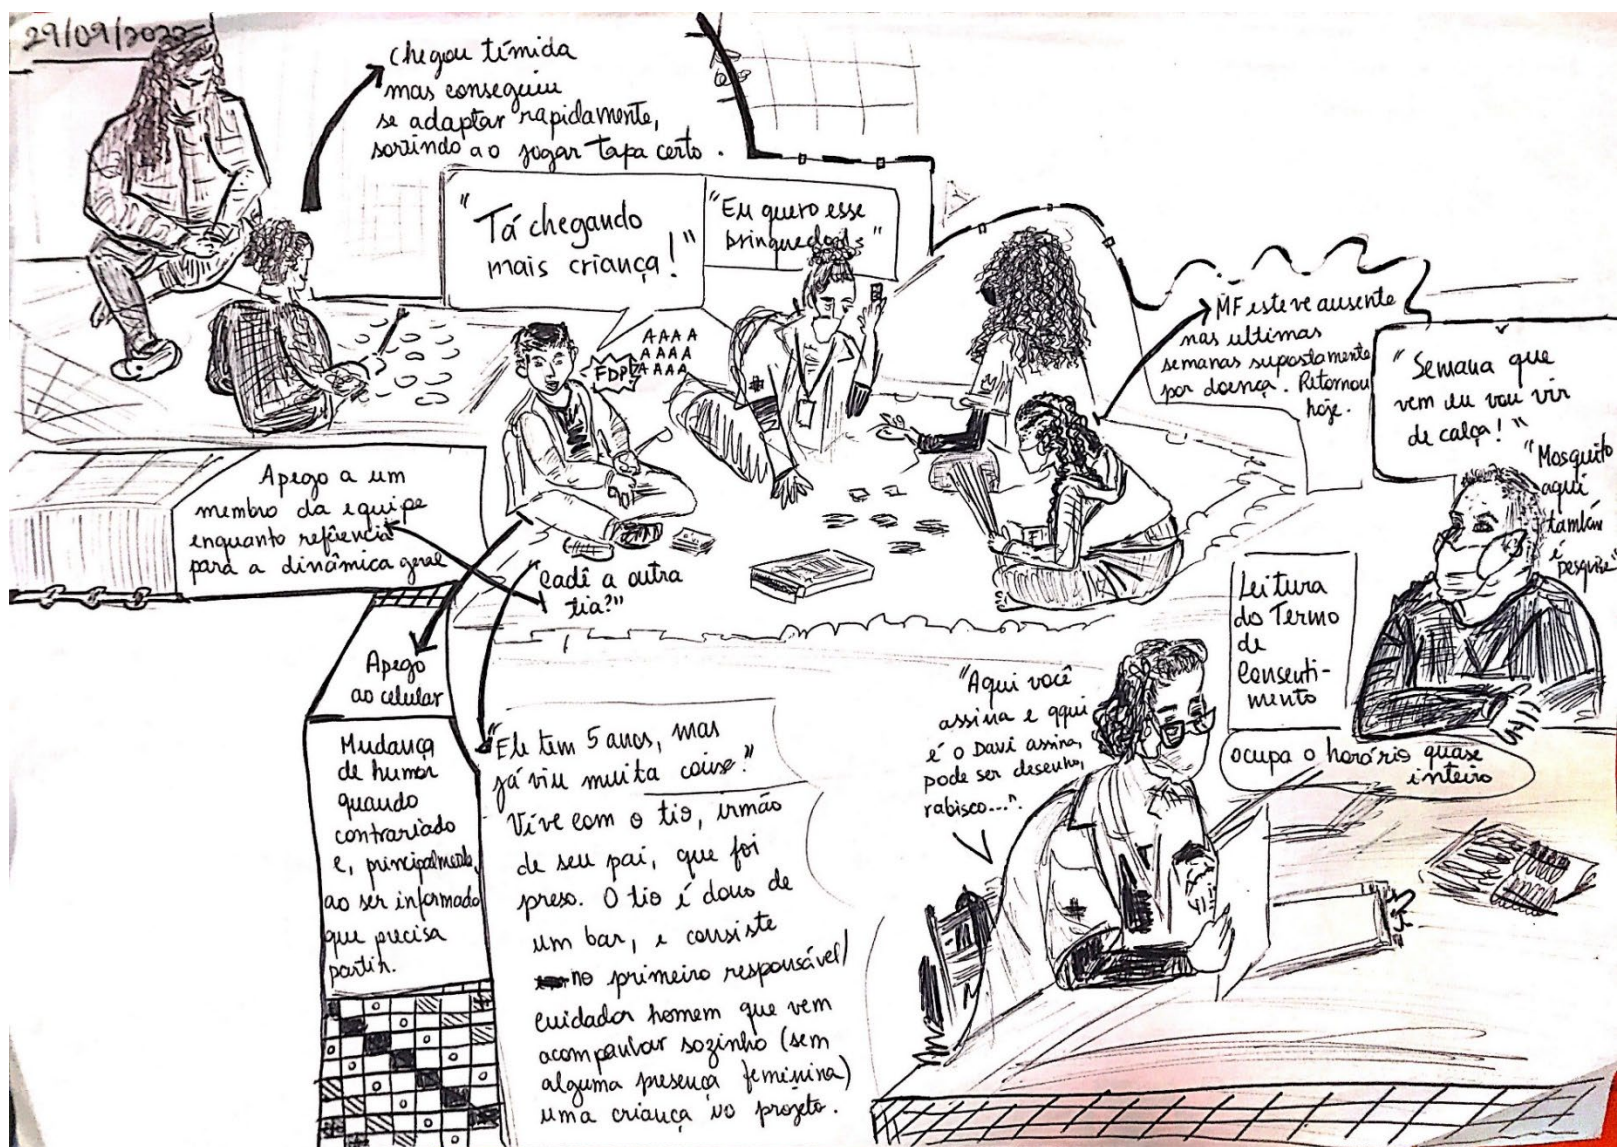 29/09/2022
chegou tímida
mas conseguiu
se adaptar rapidamente,
sorrindo ao jogar tapa certo.
"Tá chegando
mais criança!"
"Eu quero esse
brinquedo"
FDP!
AAAA
AAAA
AAAA
MF esteve ausente
nas ultimas
semanas supostamente
por doença. Retornou
hoje.
"Semana que
vem eu vou vir
de calça!"
"Mosquito
aqui
também
é
pesquisa"
Apego a um
membro da equipe
enquanto refêrencia
para a dinâmica geral
"Cadê a outra
tia?"
Apego
ao celular
Mudança
de humor
quando
contrariado
e, principalmente,
ao ser informado
que precisa
partir.
"Ele tem 5 anos, mas
já viu muita coisa."
Vive com o tio, irmão
de seu pai, que foi
preso. O tio é dono de
um bar, e consiste
no primeiro responsável/
cuidador homem que vem
acompanhar sozinho (sem
alguma presença feminina)
uma criança no projeto.
Leitura
do Termo
de
Consenti-
mento
ocupa o horário quase
inteiro
"Aqui você
assina e aqui
é o Davi assina,
pode ser desenho,
rabisco...".